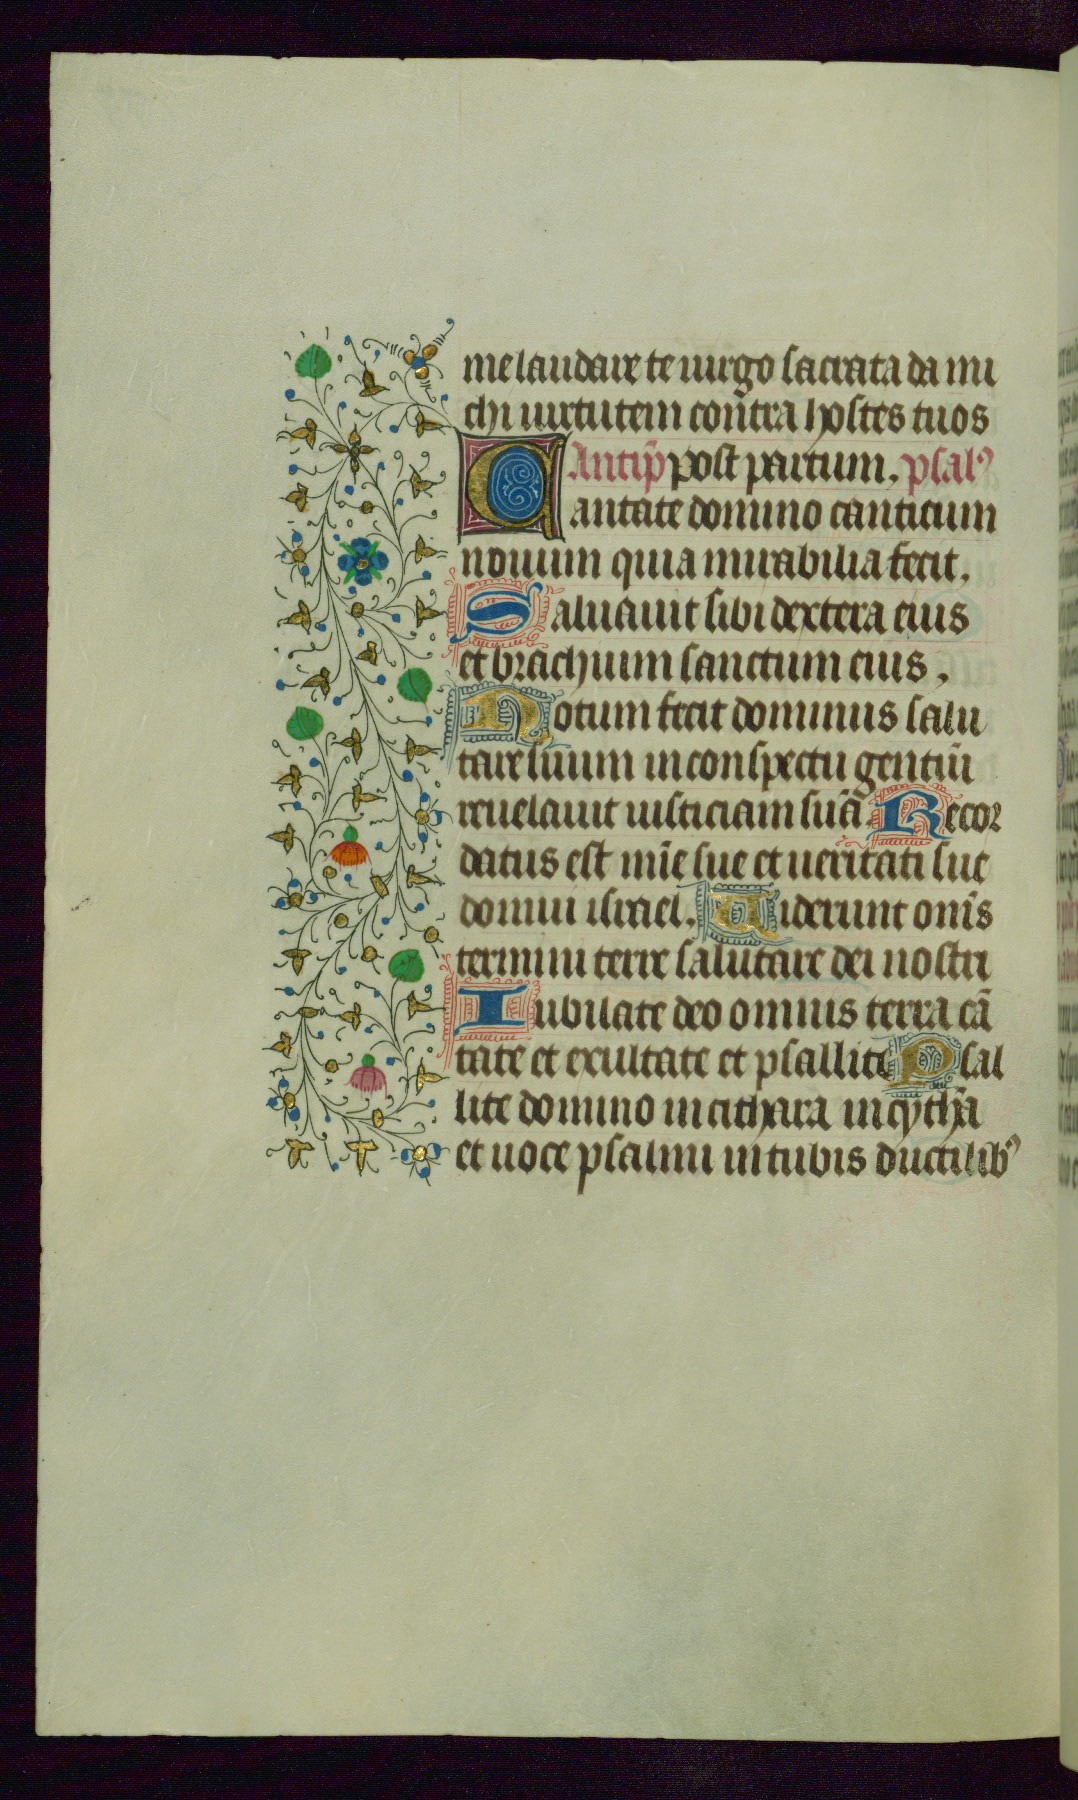 me laudare te uirgo sacrata da mi
chi uirtutem contra hostes tuos
Antip̄ post partum. psalꝰ
Cantate domino canticum
nouum quia mirabilia fecit.
Saluauit sibi dextera eius
et brachium sanctum eius.
Notum fecit dominus salu
tare suum in conspectu gentiū
reuelauit iusticiam suā. Recor
datus est mīe sue et ueritati sue
domui israel. Uiderunt om̄s
termini terre salutare dei nostri
Iubilate deo omnis terra cā
tate et exultate et psallite Psal
lite domino in cithara in cyth̄a
et uoce psalmi in tubis ductilibꝰ